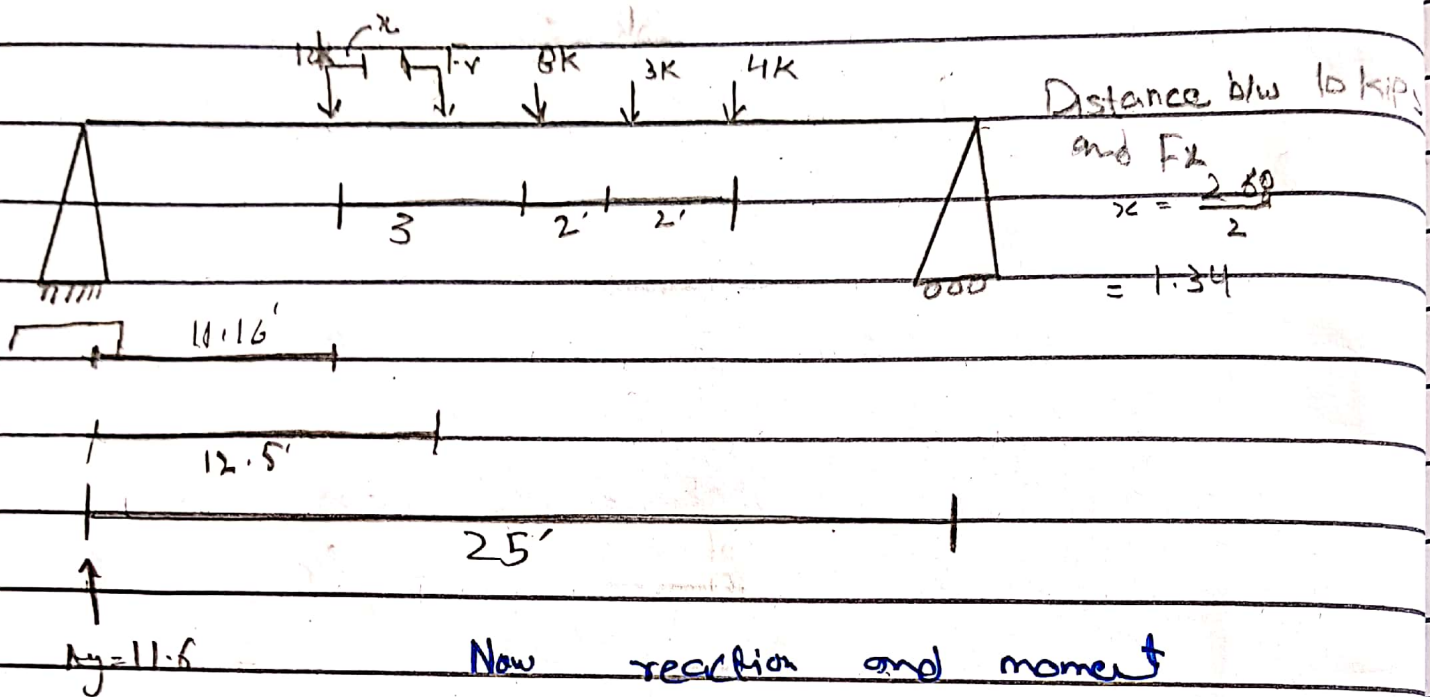 x
6K 3K 4K
Distance b/w 10 kips
and Fx
3 2' 2'
x = 2.69
2
= 1.34
11.16'
12.5'
25'
Ay=11.6
Now reaction and moment